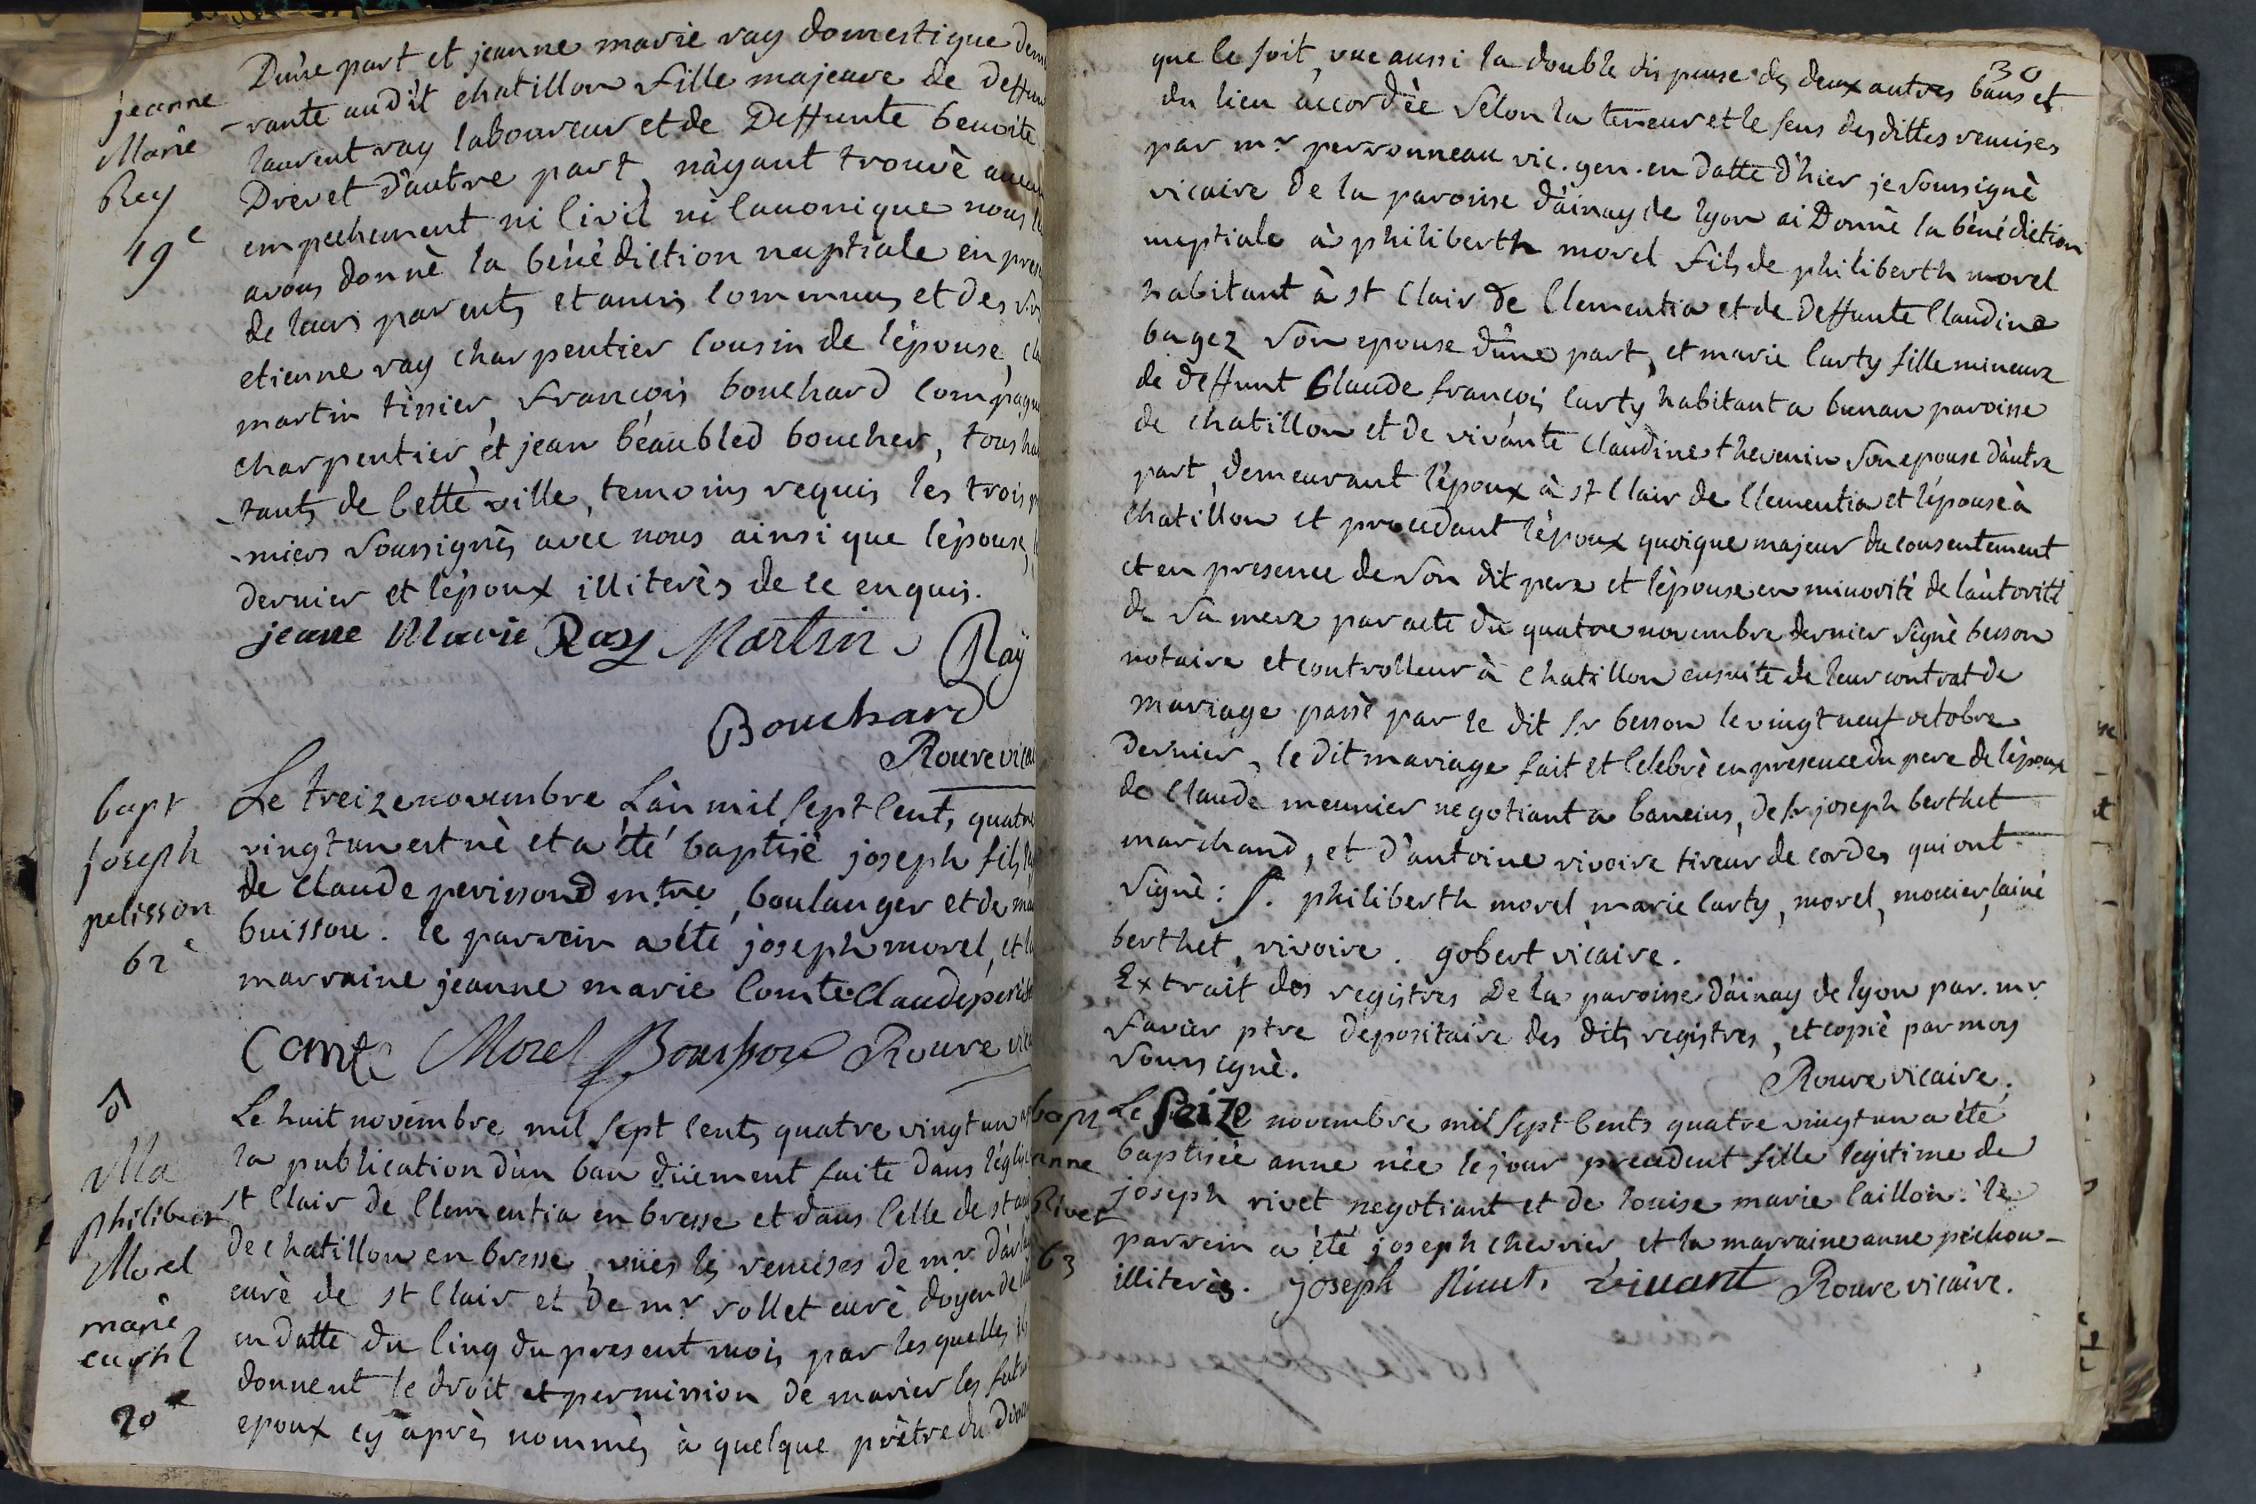 jeanne
Marie
Rey
19e
D'une part et jeanne marie ray domestique dem
-rante audit chatillon fille majeure de deffun
laurent ray laboureur et de Deffunte benoite
Drevet d'autre part, n'ayant trouvè aucun
empechement ni Civil ni Canonique nous
avons donnè la bénédiction nuptiale en pres
de leurs parents et amis Communs et des
etienne ray charpentier Cousin de l'épouse,
martin tissier, françois bouchard Compagn
charpentier, et jean béaubled boucher, tous ha
-tants de Cette ville, temoins requis les trois p
-miers soussignès avec nous ainsi que l'épouse,
dernier et l'époux illiterès de ce enquis.
jeane Marie Ray Martin Raÿ
Bouchard
Roure vica
bapt
joseph
pelisson
62e
Le treize novembre L'an mil sept Cent, quatre
vingt un est nè et a été baptisé joseph fils
de Claude perissond mtre boulanger et de ma
buisson. le parrein a été joseph morel, et la
marraine jeanne marie Comte Claude peris
Comte Morel Bouisson Roure vica
Ma
philiber
Morel
marie
curtil
20e
Le huit novembre mil sept Cents quatre vingt un
la publication d'un ban düement faite dans l'églis
st Clair de Clementia en bresse et dans Celle de st an
de chatillon en bresse, vües les remises de mr. d'ar
curè de st Clair et de mr rollet curè doyen de
en datte du Cinq du present mois par les quelles ils
donnent le droit et permission de marier les futur
epoux cy après nommès à quelque prêtre du dioc
30
que le soit, vue aussi la double dispense des deux autres bans et
du lieu accordèe selon la teneur et le sens desdittes remises
par mr perronneau vic. gen. en datte d'hier je soussignè
vicaire de la paroisse d'ainay de lyon ai Donnè la bénédiction
nuptiale à philiberth morel fils de philiberth morel
habitant à st Clair de Clementia et de Deffunte Claudine
bagez son epouse d'une part, et marie Curty fille mineure
de deffunt Claude françois Curty habitant a bunan paroisse
de chatillon et de vivante Claudine thevenin son epouse d'autre
part, demeurant l'époux à st Clair de Clementia et l'épouse à
chatillon et procedant l'époux quoique majeur du consentement
et en presence de son dit pere et l'épouse en minorité de l'autorité
de sa mere par acte du quatre novembre dernier signè besson
notaire et controlleur à Chatillon ensuite de leur contrat de
mariage passè par le dit Sr besson le vingt neuf octobre
dernier, le dit mariage fait et Célebrè en présence du pere de l'époux
de Claude meunier negotiant a baneins, de Sr joseph berthet
marchand, et d'antoine vivoire tireur de cordes qui ont
signè: S. philiberth morel marie Curty, morel, monier, l'ainé
berthet, vivoire. gobert vicaire.
Extrait des registres De la paroisse d'ainay de lyon par. mr.
favier ptre depositaire des dits registres, et copiè par moy
soussignè.
Rouvre vicaire.
bapt
anne
Rivet
63
Le Seize novembre mil sept Cents quatre vingt un a été
baptisèe anne nèe le jour precedent fille legitime de
joseph rivet negotiant et de louise marie Caillon. le
parrein a été joseph chevrier et la marraine anne péchou-
illiterès. joseph Rivet. vivant Rouvre vicaire.